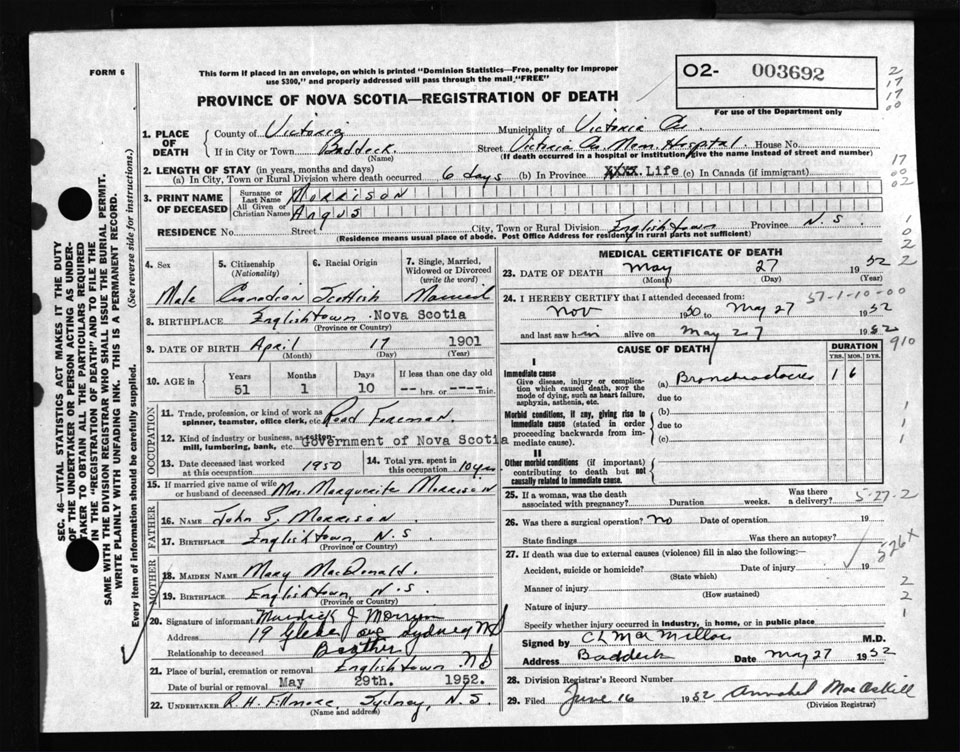 FORM 6
This form if placed in an envelope, on which is printed "Dominion Statistics—Free, penalty for improper
use $300," and properly addressed will pass through the mail "FREE"
PROVINCE OF NOVA SCOTIA—REGISTRATION OF DEATH
02- 003692
For use of the Department only
2
17
17
00
17
00
02
1
0
2
2
SEC. 46—VITAL STATISTICS ACT MAKES IT THE DUTY
OF THE UNDERTAKER OR PERSON ACTING AS UNDER-
TAKER TO OBTAIN ALL THE PARTICULARS REQUIRED
IN THE "REGISTRATION OF DEATH" AND TO FILE THE
SAME WITH THE DIVISION REGISTRAR WHO SHALL ISSUE THE BURIAL PERMIT.
WRITE PLAINLY WITH UNFADING INK. THIS IS A PERMANENT RECORD.
Every item of information should be carefully supplied. (See reverse side for instructions.)
1. PLACE OF DEATH
County of Victoria Municipality of Victoria Co.
If in City or Town Baddeck. Street Victoria Co. Mem. Hospital. House No.
(Name) (If death occurred in a hospital or institution, give the name instead of street and number)
2. LENGTH OF STAY (in years, months and days)
(a) In City, Town or Rural Division where death occurred 6 days (b) In Province XXXX. Life (c) In Canada (if immigrant)
3. PRINT NAME OF DECEASED
Surname or Last Name MORRISON
All Given or Christian Names Angus
RESIDENCE No. Street City, Town or Rural Division Englishtown Province N.S.
(Residence means usual place of abode. Post Office Address for residents in rural parts not sufficient)
4. Sex Male
5. Citizenship (Nationality) Canadian
6. Racial Origin Scottish
7. Single, Married, Widowed or Divorced (write the word) Married
8. BIRTHPLACE Englishtown Nova Scotia
(Province or Country)
9. DATE OF BIRTH April 17 1901
(Month) (Day) (Year)
10. AGE in Years Months Days If less than one day old
51 1 10 -- hrs. or ---- min.
OCCUPATION
11. Trade, profession, or kind of work as spinner, teamster, office clerk, etc. Road Foreman.
12. Kind of industry or business, as cotton-mill, lumbering, bank, etc. Government of Nova Scotia
13. Date deceased last worked at this occupation 1950
14. Total yrs. spent in this occupation 10 yrs.
15. If married give name of wife or husband of deceased Mrs. Marguerite Morrison
FATHER
16. NAME John S. Morrison.
17. BIRTHPLACE Englishtown, N.S.
(Province or Country)
MOTHER
18. MAIDEN NAME Mary MacDonald.
19. BIRTHPLACE Englishtown, N.S.
(Province or Country)
20. Signature of informant Murdick J Morrison
Address 19 Glebe ave Sydney NS
Relationship to deceased Brother
21. Place of burial, cremation or removal Englishtown NS
Date of burial or removal May 29th. 1952.
22. UNDERTAKER R.H. Fillmore, Sydney, N.S.
(Name and address)
MEDICAL CERTIFICATE OF DEATH
23. DATE OF DEATH May 27 1952
(Month) (Day) (Year)
24. I HEREBY CERTIFY that I attended deceased from: 57-1-10-00
Nov 1950 to May 27 1952
and last saw him alive on May 27 1952
910
CAUSE OF DEATH DURATION
YRS. MOS. DYS.
I
Immediate cause
Give disease, injury or complication which caused death, NOT the mode of dying, such as heart failure, asphyxia, asthenia, etc.
(a) Bronchiectasis 1 6
due to
Morbid conditions, if any, giving rise to immediate cause (stated in order proceeding backwards from immediate cause).
(b)
due to
(c)
II
Other morbid conditions (if important) contributing to death but not causally related to immediate cause.
1
1
1
25. If a woman, was the death associated with pregnancy? Duration weeks. Was there a delivery? 5-27-2
26. Was there a surgical operation? No Date of operation 19
State findings Was there an autopsy?
526x
27. If death was due to external causes (violence) fill in also the following:—
Accident, suicide or homicide? Date of injury 19
(State which)
Manner of injury
(How sustained)
Nature of injury
Specify whether injury occurred in Industry, in home, or in public place
2
2
1
Signed by C L MacMillan M.D.
Address Baddeck Date May 27 1952
28. Division Registrar's Record Number
29. Filed June 16 1952 Annabel MacAskill
(Division Registrar)